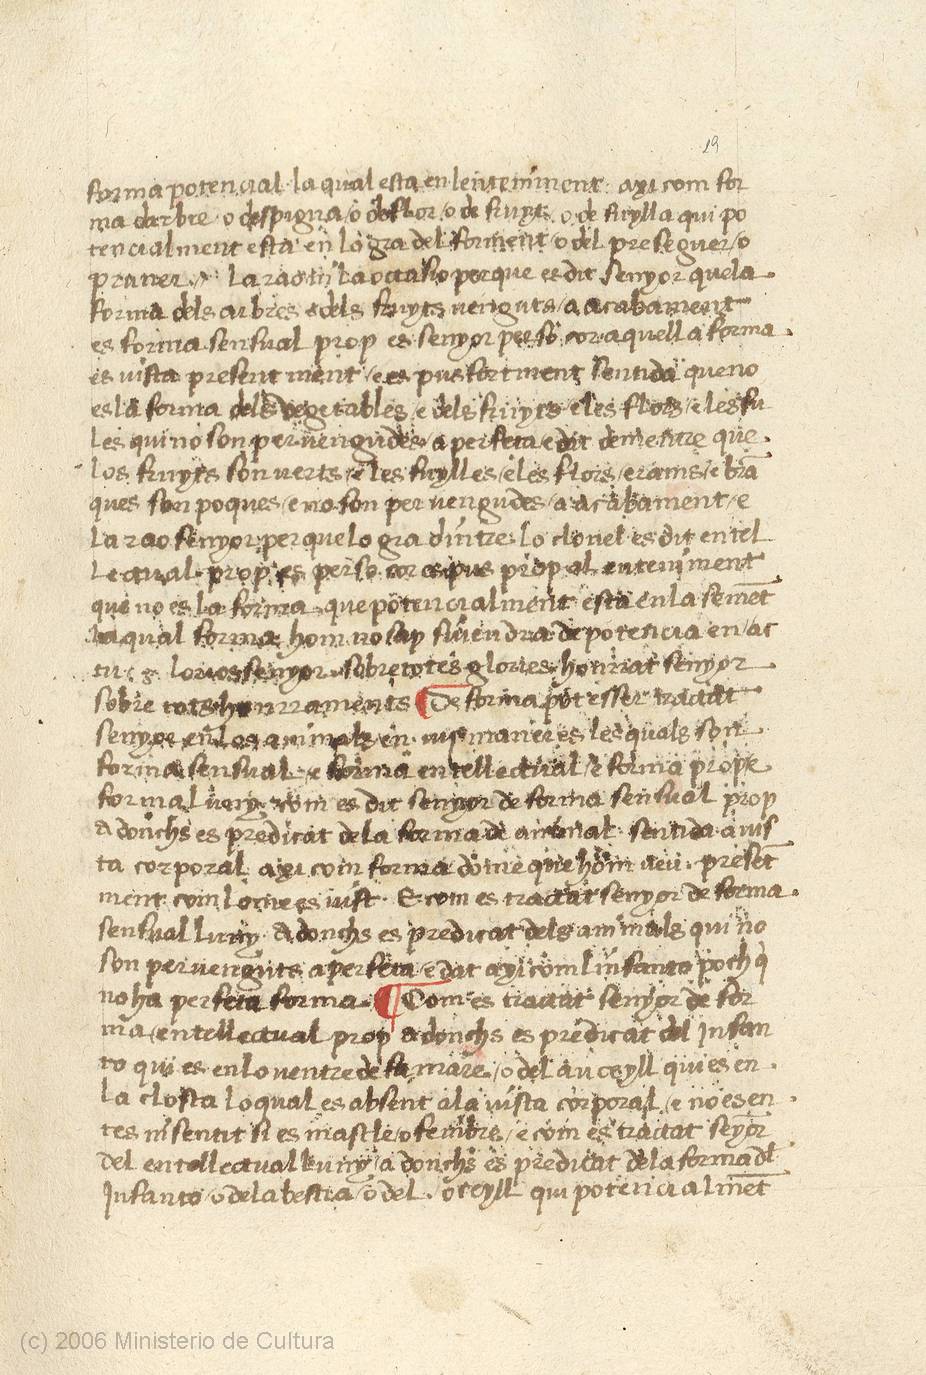 19
forma potencial la qual esta en lenteniment axi com for
ma darbre o despigua o de flor o de fruyt o de fuylla qui po
tencialment esta en lo gra del forment o del preseguer o
pruner. la rao ni la occasio per que es dit senyor que la
forma dels arbres e dels fruyts venguts a acabament
es forma sensual prop es senyor per so cor aquella forma
es vista present ment e es pus fortment sentida que no
es la forma dels vegetables e dels fruyts e les flors e les fu
les qui no son pervengudes a perfeta edat dementre que
los fruyts son verts e les fuylles e les flors e rams e brã
ques son poques e no son pervengudes a acabament e
la rao senyor per que lo gra dintre lo clouel es dit entel
lectual prop es per so cor es pus prop al enteniment
que no es la forma que potencialment esta en la semẽt
la qual forma hom no sap si uendra de potencia en ac
tu glorios senyor sobre totes glories honrrat senyor
sobre tots honrraments De forma pot esser tractat
senyor en los animals en .iiij. maneres les quals son
forma sensual e forma entellectual e forma prope
forma luny com es dit senyor de forma sensual prop
adonchs es predicat de la forma de animal sentida a uis
ta corporal axi com forma dome que hom ueu presẽt
ment com lome es uist. E com es tractat senyor de forma
sensual luny. Adonchs es predicat dels animals qui no
son pervenguts a perfeta edat axi com linfanto poch q̃
no ha perfeta forma. Com es tractat senyor de for
ma entellectual prop adonchs es predicat del Infan
to qui es en lo ventre de sa mare o del auceyll qui es en
la closta lo qual es absent a la uista corporal e no es en
tes ni sentit si es mascle o fembre e com es tractat seyor
del entellectual luny adonchs es predicat de la forma dl
Infanto o de la bestia o del oceyll qui potencialmẽt
(c) 2006 Ministerio de Cultura